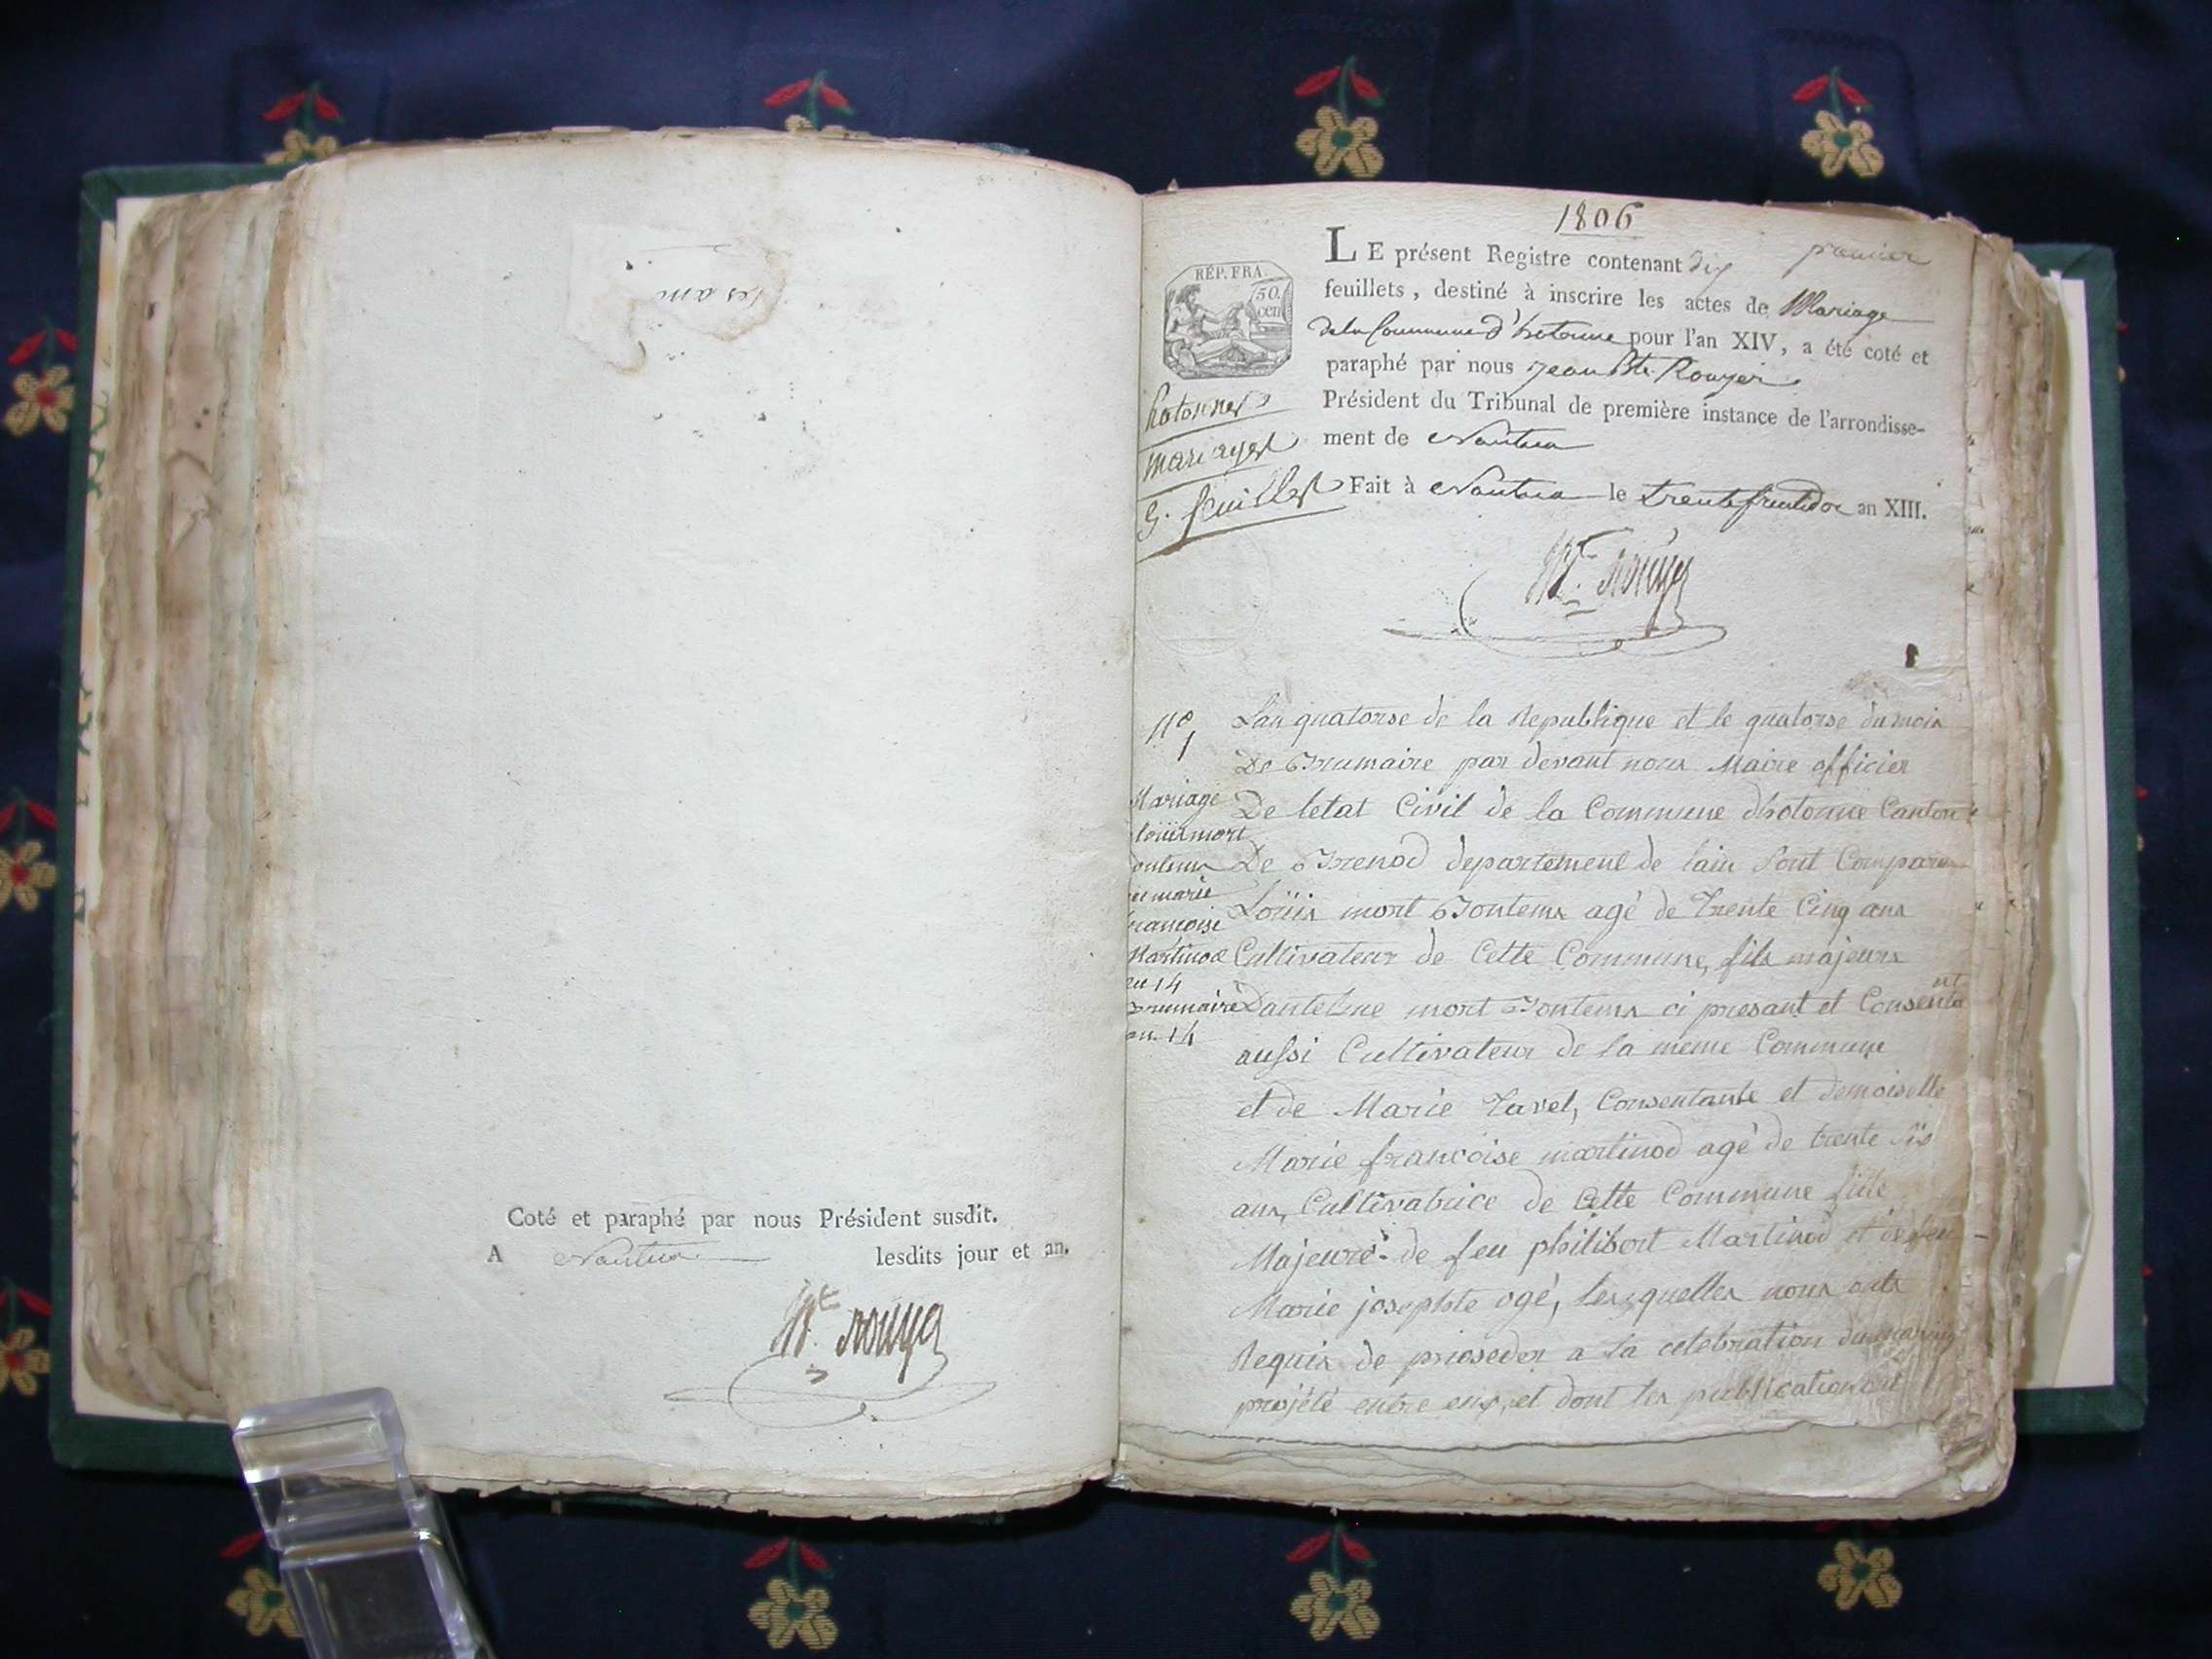 Coté et paraphé par nous Président susdit.
A Nantua lesdits jour et an.
1806
premier
RÉP. FRA.
50.
cen
LE présent Registre contenant dix
feuillets, destiné à inscrire les actes de Mariage
de la Commune d'hotonne pour l'an XIV, a été coté et
paraphé par nous jean Bte. Rouyer
Président du Tribunal de première instance de l'arrondisse-
ment de Nantua
Fait à Nantua le trente fructidor an XIII.
hotonnes
mariages
feuillets
Lan quatorse de la Republique et le quatorse du mois
De Brumaire par devant nous Maire officier
De letat Civil de la Commune dhotonne Canton
De Brenod departement de lain sont Comparu
Loüis mort Bontems agé de Trente Cinq ans
Cultivateur de Cette Commune, fils majeurs
Dantelme mort Bontems ci presant et Consentant
aussi Cultivateur de la meme Commune
et de Marie Tavel, Consentante et demoiselle
Marie francoise martinod agé de trente six
ans, Cultivatrice de Cette Commune fille
Majeure de feu philibert Martinod et de feu
Marie josephte ogé, Lesquelles nous ont
Requis de proseder a la celebration du mariage
projété entre eux, et dont les publication ont
N° 1
Mariage
loüis mort
bontems
marie
francoise
Martinod
du 14
Brumaire
an 14